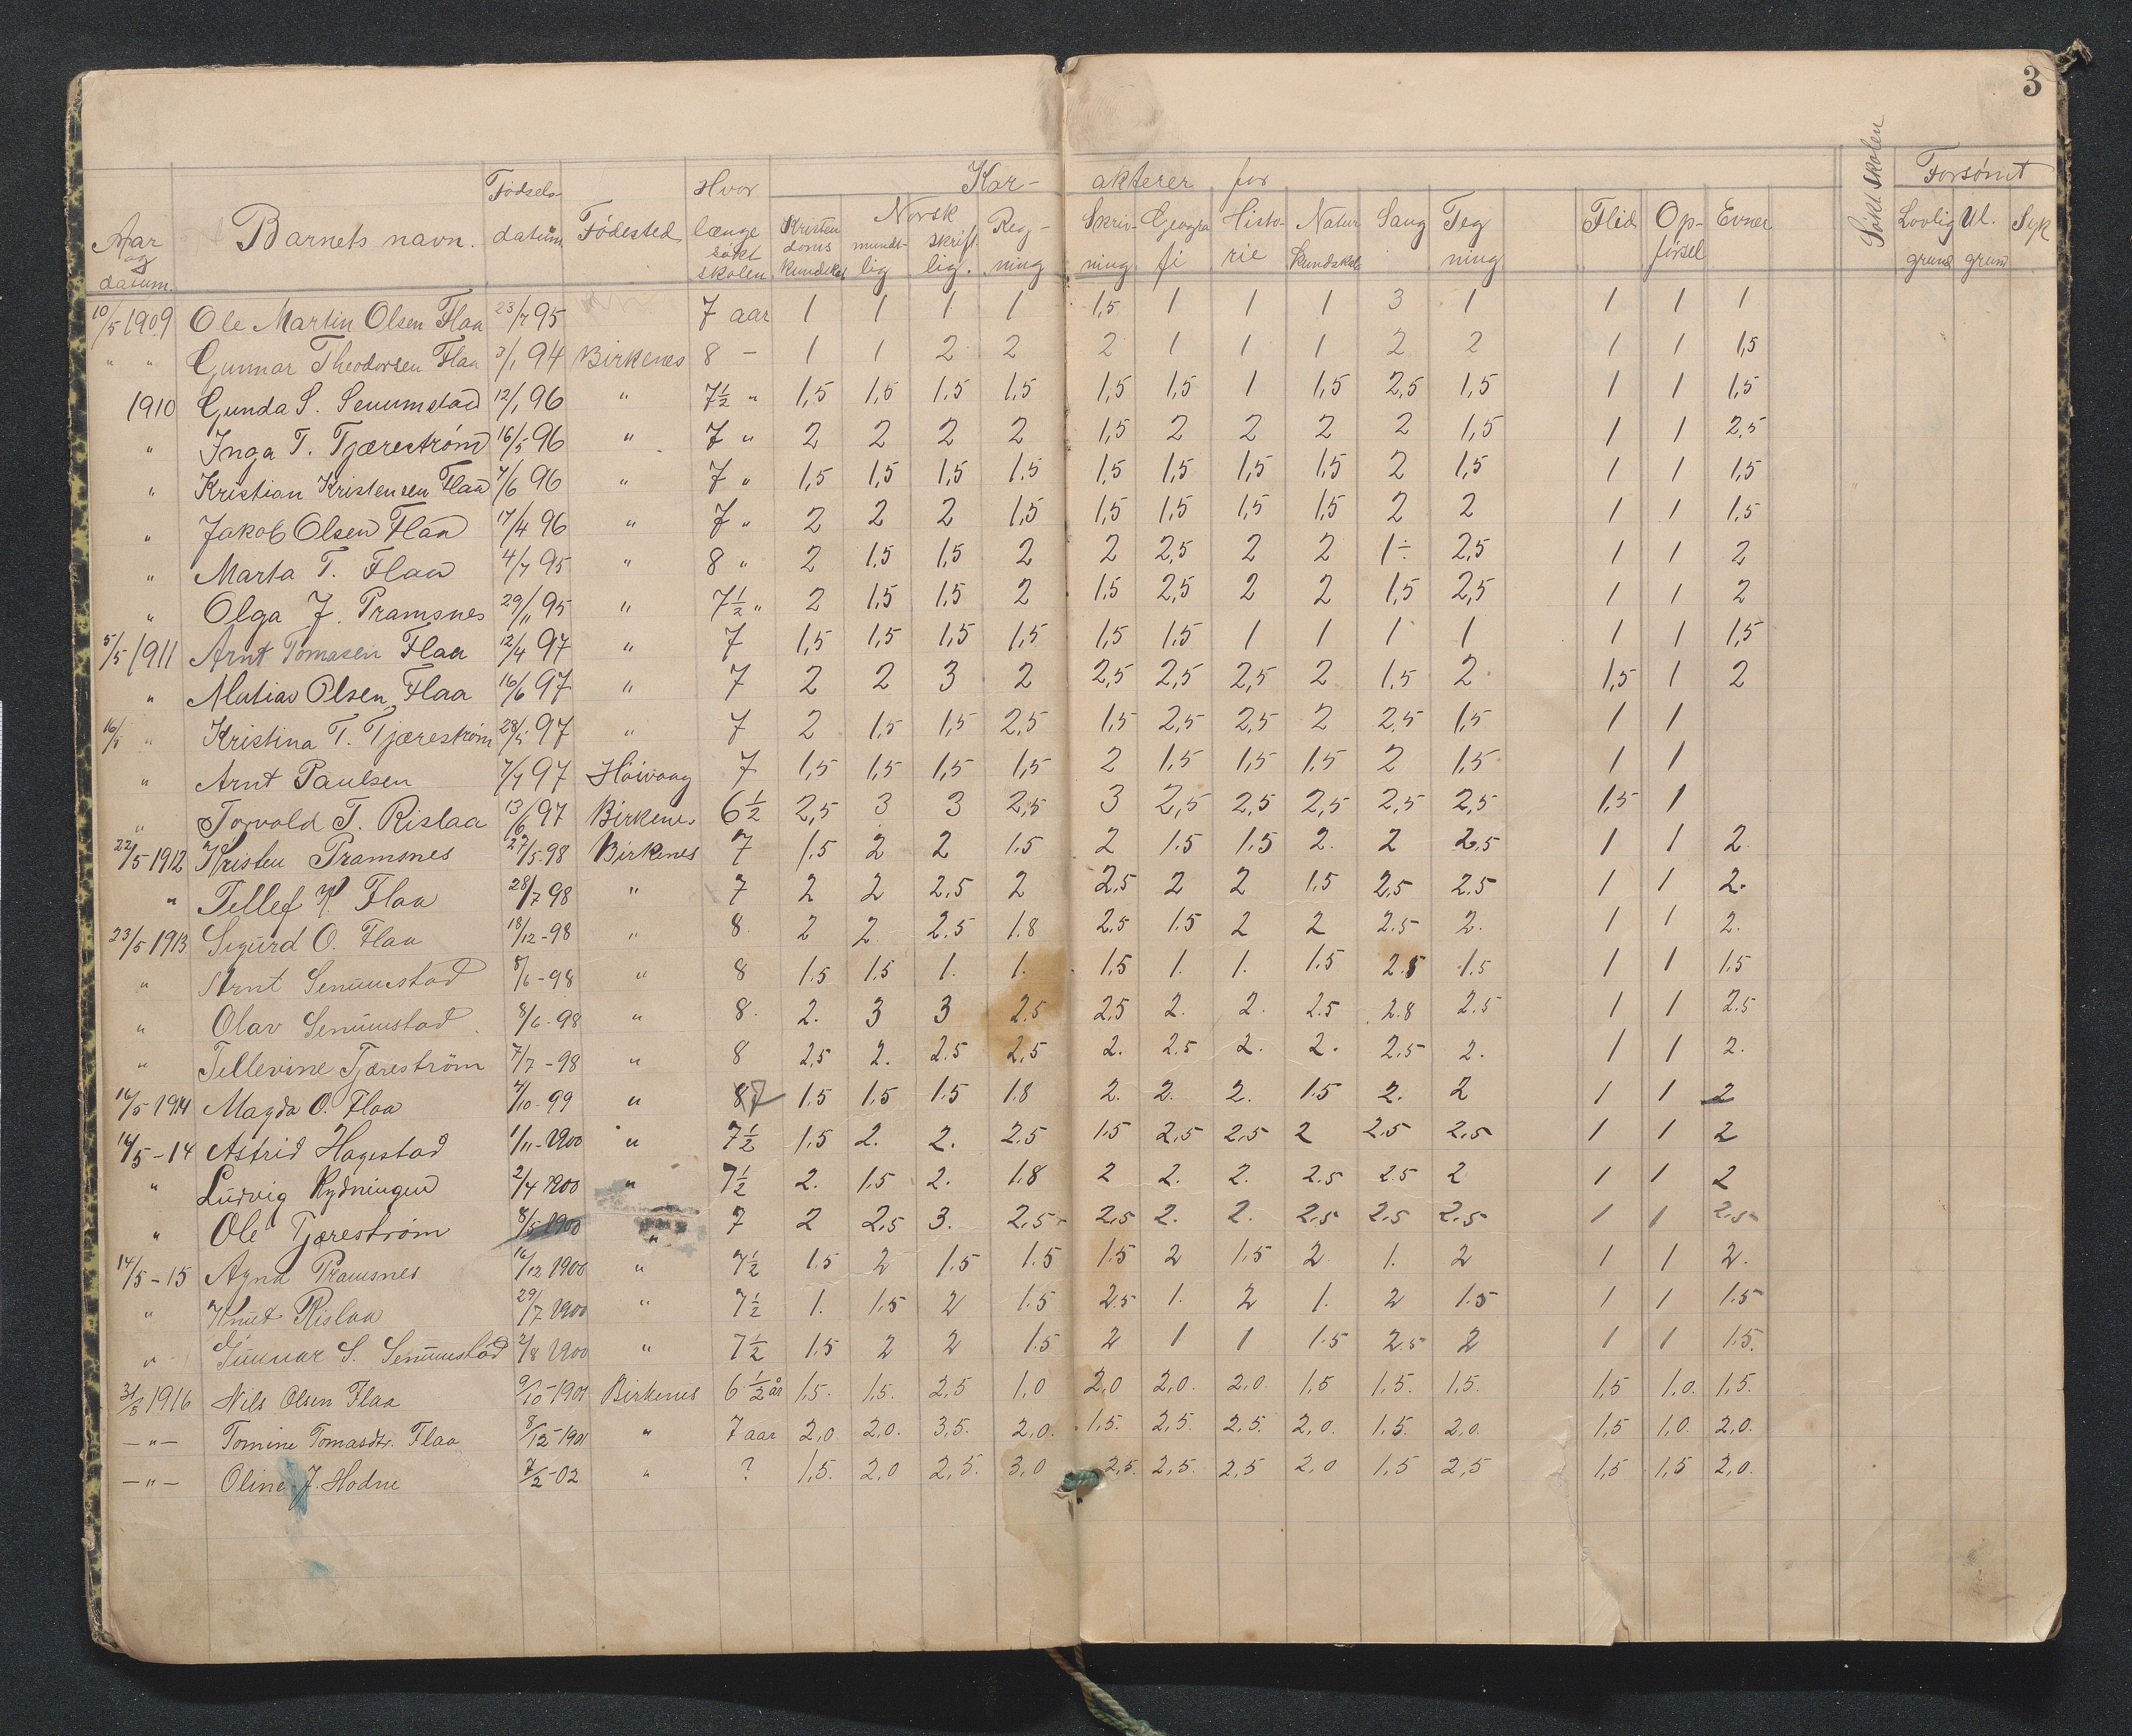 3
Kar- akterer for Forsømt
Aar og datum. Barnets navn. Fødselsdatum Fødested Hvor længe søkt skolen Kristendoms kundskab Norsk mundtlig skriftlig. Regning Skrivning Geografi Historie Natur kundskab Sang Tegning Flid Opførsel Evner Søkt skolen Lovlig grund Ul. grund Syk
10/5 1909 Ole Martin Olsen Flaa 23/7 95 7 aar 1 1 1 1 1,5 1 1 1 3 1 1 1 1
" " Gunnar Theodorsen Flaa 3/1 94 Birkenes 8 - 1 1 2 2 2 1 1 1 2 2 1 1 1,5
1910 Gunda S. Senumstad 12/1 96 " 7½ " 1,5 1,5 1,5 1,5 1,5 1,5 1 1,5 2,5 1,5 1 1 1,5
" Inga T. Tjærestrøm 16/5 96 " 7 " 2 2 2 2 1,5 2 2 2 2 1,5 1 1 2,5
" Kristian Kristensen Flaa 7/6 96 " 7 " 1,5 1,5 1,5 1,5 1,5 1,5 1,5 1,5 2 1,5 1 1 1,5
" Jakob Olsen Flaa 17/4 96 " 7 " 2 2 2 1,5 1,5 1,5 1,5 1,5 2 2 1 1 1,5
" Marta T. Flaa 4/7 95 " 8 " 2 1,5 1,5 2 2 2,5 2 2 1÷ 2,5 1 1 2
" Olga J. Pramsnes 29/11 95 " 7½ " 2 1,5 1,5 2 1,5 2,5 2 2 1,5 2,5 1 1 2
5/5 1911 Arnt Tomasen Flaa 12/4 97 " 7 1,5 1,5 1,5 1,5 1,5 1,5 1 1 1 1 1 1 1,5
" Matias Olsen Flaa 16/6 97 " 7 2 2 3 2 2,5 2,5 2,5 2 1,5 2 1,5 1 2
16/5 " Kristina T. Tjærestrøm 28/5 97 " 7 2 1,5 1,5 2,5 1,5 2,5 2,5 2 2,5 1,5 1 1
" Arnt Paulsen 7/7 97 Høivaag 7 1,5 1,5 1,5 1,5 2 1,5 1,5 1,5 2 1,5 1 1
" Torvald T. Rislaa 13/6 97 Birkenes 6½ 2,5 3 3 2,5 3 2,5 2,5 2,5 2,5 2,5 1,5 1
22/5 1912 Kristen Pramsnes 27/5-98 Birkenes 7 1.5 2 2 1.5 2 1.5 1.5 2. 2 2.5 1 1 2.
" Tellef K. Flaa 28/7 98 " 7 2 2 2.5 2 2.5 2 2 1.5 2.5 2.5 1 1 2.
23/5 1913. Sigurd O. Flaa 18/12-98 " 8. 2 2. 2.5 1.8 2.5 1.5 2 2 2.5 2. 1 1 2.
" Arnt Senumstad 8/6-98 " 8 1.5 1.5 1. 1. 1.5 1. 1. 1.5 2.5 1.5 1 1 1.5
" Olav Senumstad. 8/6-98 " 8. 2. 3 3 2.5 2.5 2. 2. 2.5 2.8 2.5 1 1 2.5
" Tellevine Tjæreström 7/7-98 " 8 2,5 2. 2.5 2,5 2. 2.5 2. 2. 2.5 2. 1 1 2.
16/5 1914 Magda O. Flaa 4/10-99 " 87 1.5 1.5 1.5 1.8 2. 2. 2. 1.5 2. 2 1 1 2
16/5-14 Astrid Hagestad 1/11-1900 " 7½ 1.5 2. 2. 2.5 1.5 2.5 2.5 2 2.5 2.5 1 1 2
" Ludvig Rydningen 2/4 1900 " 7½ 2. 1.5 2. 1.8 2 2. 2. 2.5 2.5 2 1 1 2
" Ole Tjærestrøm 8/5 1900 " 7 2 2.5 3. 2.5 2.5 2. 2. 2.5 2.5 2.5 1 1 2.5
14/5-15 Agna Pramsnes 16/12 1900 " 7½ 1.5 2 1.5 1.5 1.5 2 1.5 2 1. 2 1 1 2.
" Knut Rislaa 29/7 1900 " 7½ 1. 1.5 2 1.5 2.5 1. 2 1. 2 1.5 1 1 1.5
" Gunnar S. Senumstad 2/8 1900 " 7½ 1.5 2 2 1.5 2 1 1 1.5 2.5 2 1 1 1.5.
31/5 1916 Nils Olsen Flaa 9/10-1901 Birkenes 6½ år 1,5. 1,5. 2,5 1,0 2,0 2,0. 2,0. 1,5 1,5. 1,5. 1,5 1,0. 1,5.
-"- Tomine Tomasdtr. Flaa 8/12-1901 " 7 aar 2,0. 2,0. 3,5. 2,0. 1,5. 2,5. 2,5. 2,0. 1,5. 2,0. 1,5 1,0. 2,0.
-"- Oline J. Hodne 7/2-02 " ? 1,5. 2,0 2,5. 3,0 2,5. 2,5. 2,5 2,0 1,5 2,5 1,5 1,5 2,0.